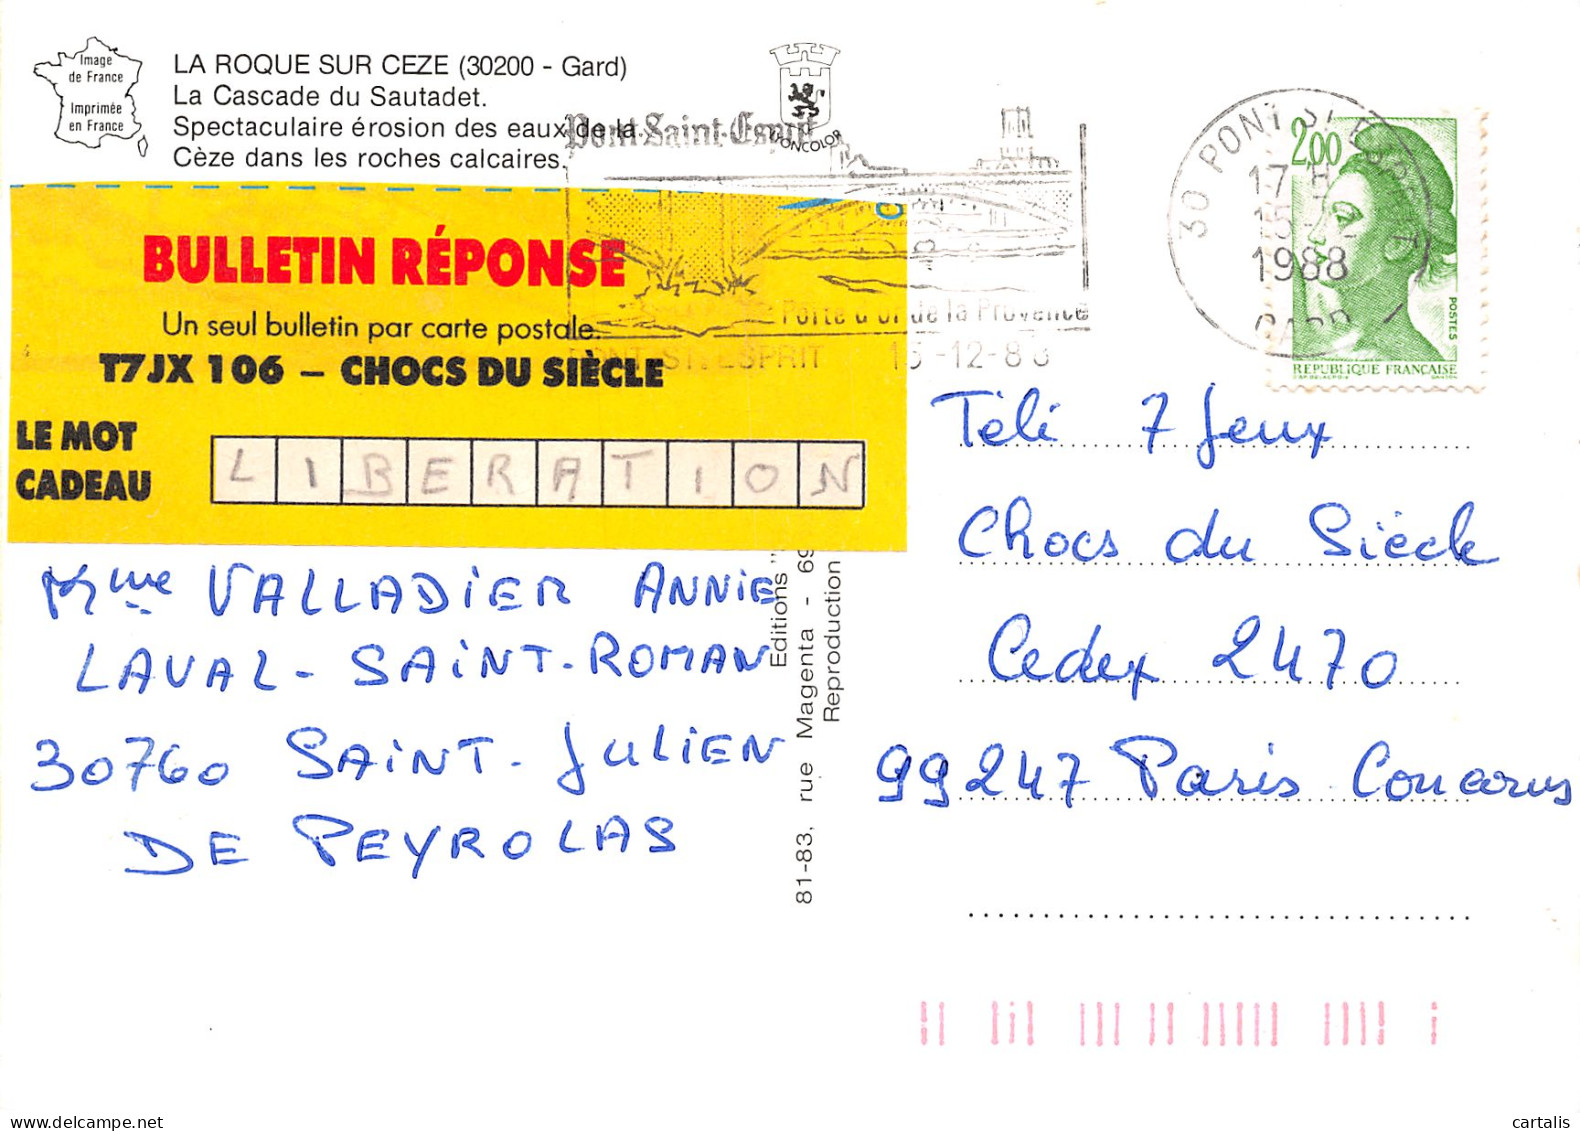 Image
de France
Imprimée
en France
LA ROQUE SUR CEZE (30200 - Gard)
La Cascade du Sautadet.
Spectaculaire érosion des eaux de la
Cèze dans les roches calcaires.
Pont-Saint-Esprit
Porte d'or de la Provence
PONT-ST. ESPRIT
30 PONT ST ESPRIT
17 H
15-
1988
GARD
2,00
POSTES
REPUBLIQUE FRANÇAISE
BULLETIN RÉPONSE
Un seul bulletin par carte postale.
T7JX 106 – CHOCS DU SIÈCLE
LE MOT
CADEAU
LIBERATION
Mme VALLADIER ANNIE
LAVAL-SAINT-ROMAN
30760 SAINT-JULIEN
DE PEYROLAS
Editions "
81-83, rue Magenta - 69
Reproduction
Téli 7 Jeux
Chocs du Siècle
Cedex 2470
99247 Paris Concours
cartalis
delcampe.net